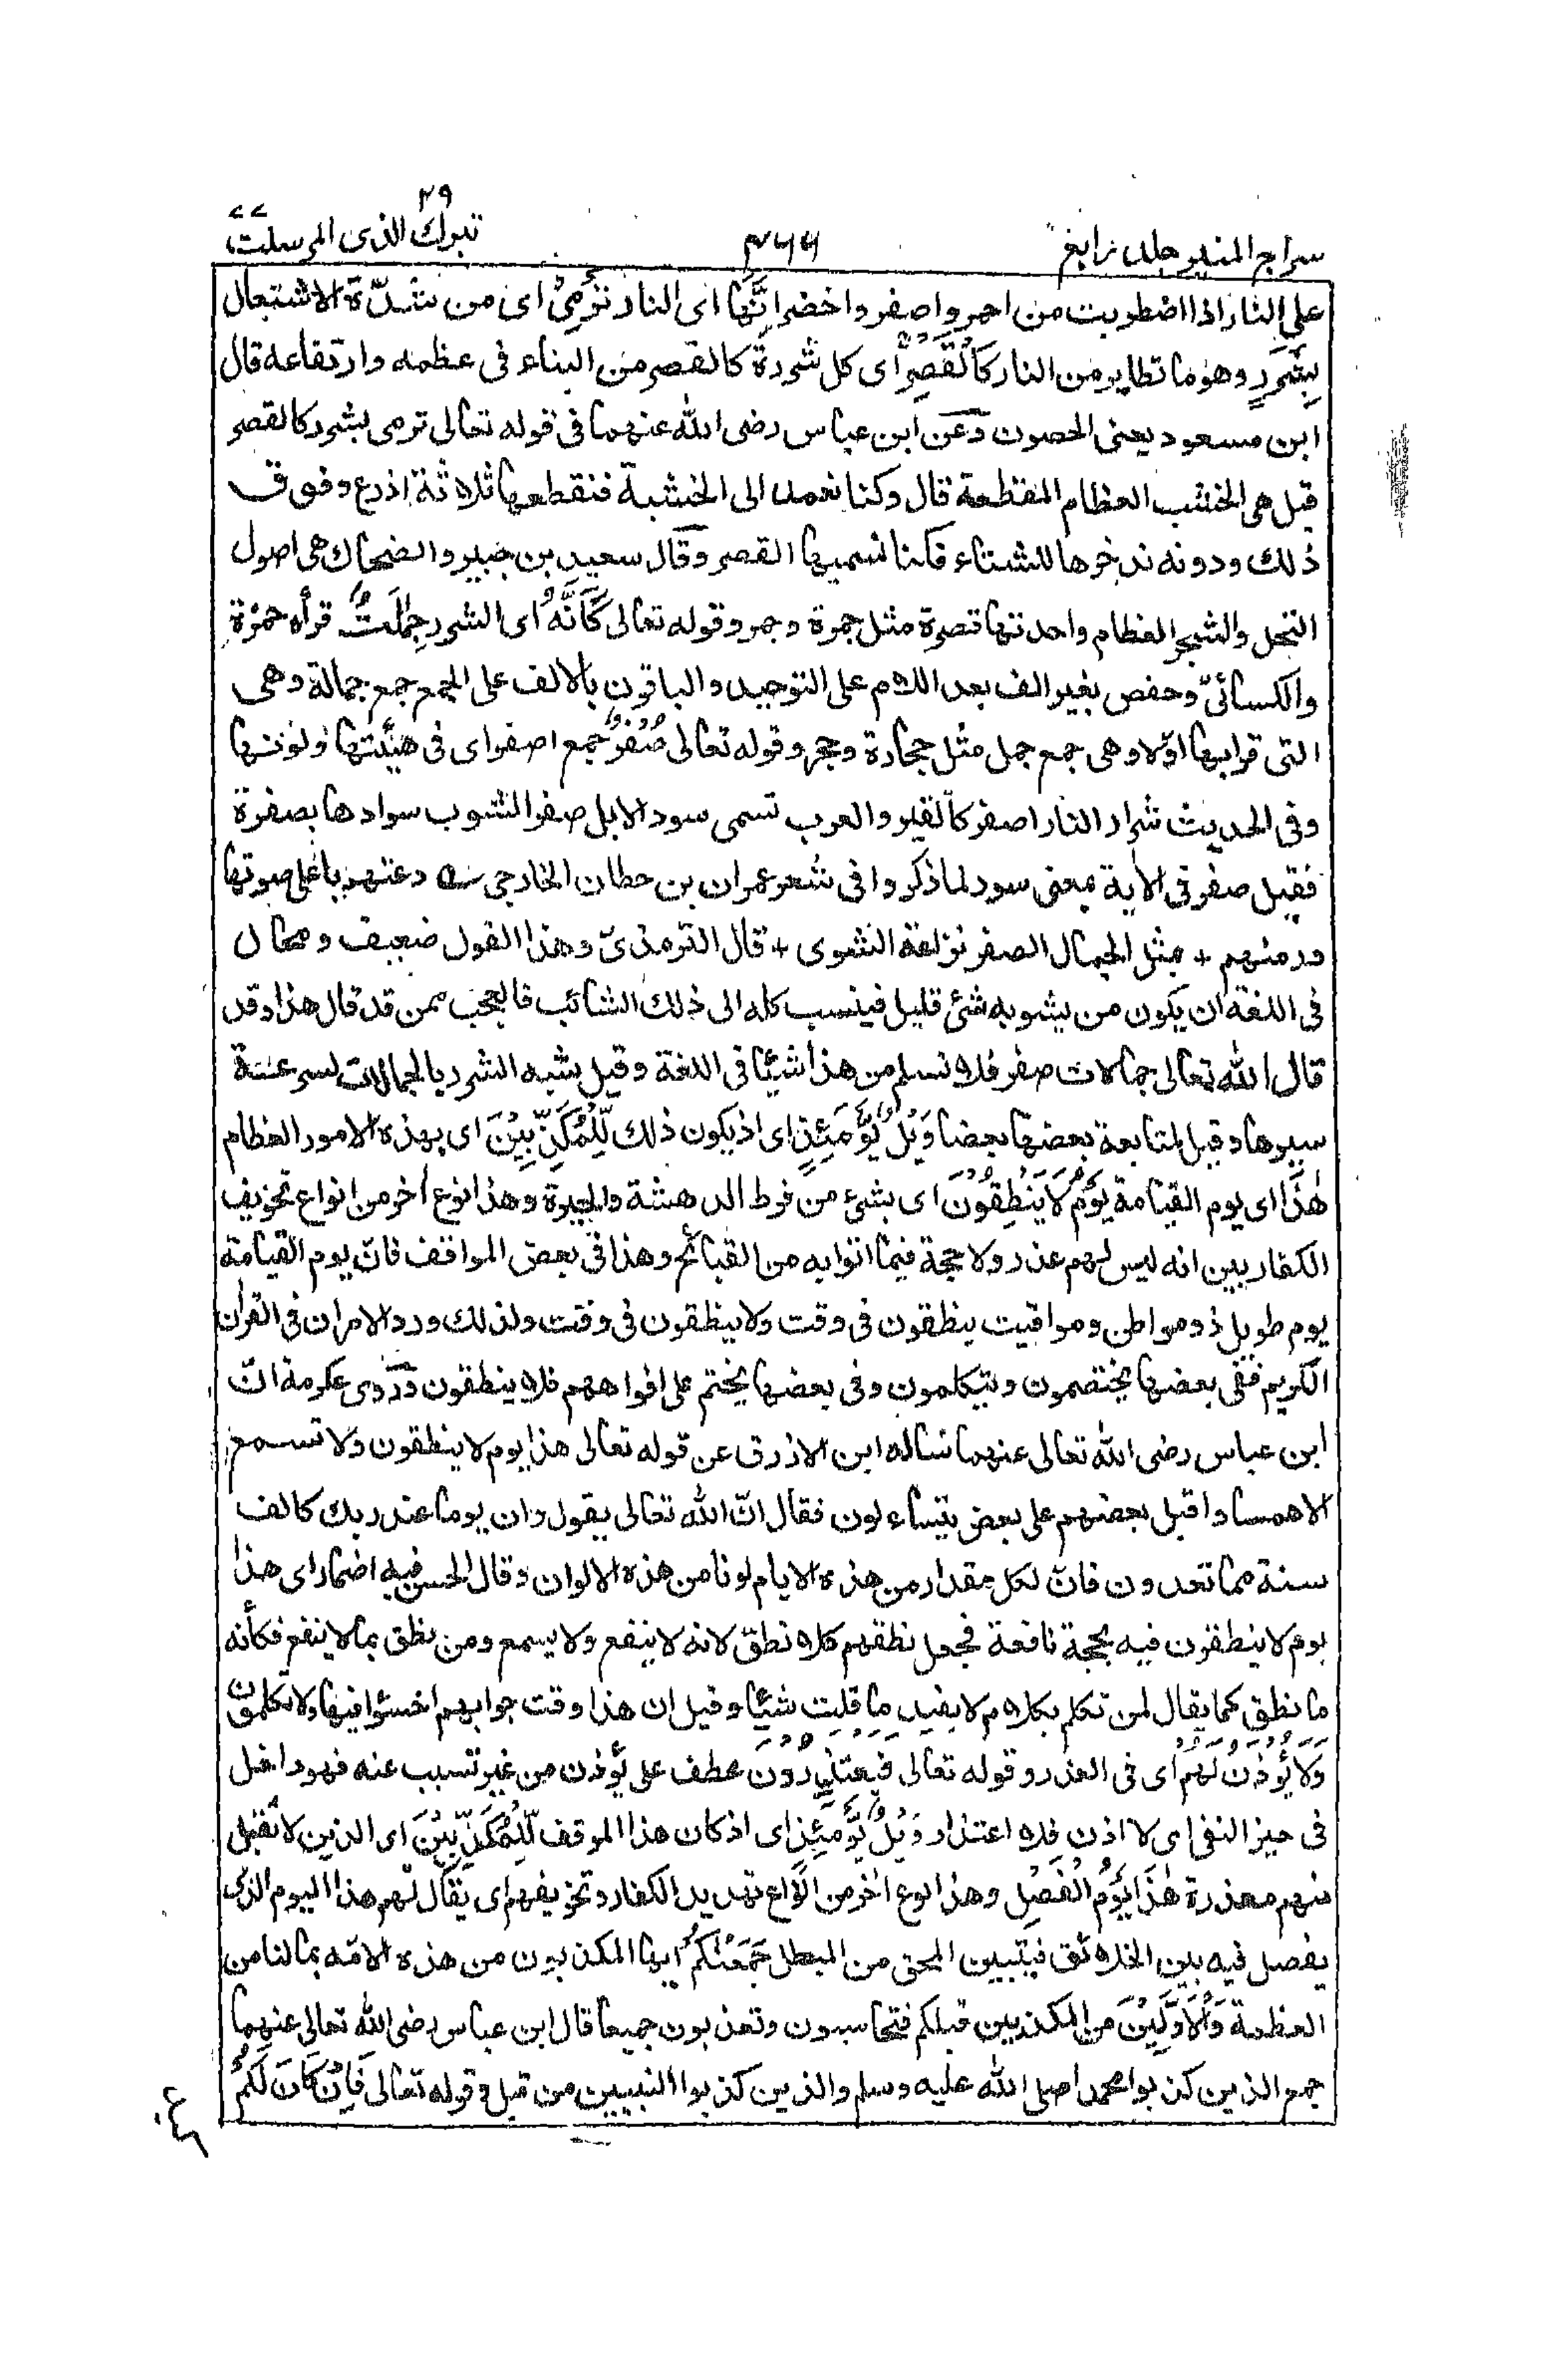 سراج المنير جلد رابع
۴۶۶
تبرك الذى ۲۹ المرسلت ۷۷
على النار اذا اضطربت من احمر واصفر واخضر اِنَّهَا اى النار تَرْمِىْ اى من شدّة الاشتعال
بِشَرَرٍ وهو ما تطاير من النار كَالْقَصْرِ اى كل شررة كالقصر من البناء فى عظمه وارتفاعه قال
ابن مسعود يعنى الحصون وعن ابن عباس رضى الله عنهما فى قوله تعالى ترمى بشرر كالقصر
قيل هى الخشب العظام المقطعة قال وكنا نعمد الى الخشبة فنقطعها ثلاثة اذرع وفوق
ذلك ودونه ندخرها للشتاء فكنا نسميها القصر وقال سعيد بن جبير والضحاك هى اصول
النخل والشجر العظام واحدتها قصرة مثل جمرة وجمر وقوله تعالى كَاَنَّهٗ اى الشرر جِمٰلَتٌ قرأه حمزة
والكسائىّ وحفص بغير الف بعد اللام على التوحيد والباقون بالالف على الجمع جمع جمالة وهى
التى قرابها اوّلا وهى جمع جمل مثل حجارة وحجر وقوله تعالى صُفْرٌ جمع اصفر اى فى هيئتها ولونها
وفى الحديث شرار النار اصفر كالقير والعرب تسمى سود الابل صفر الشوب سوادها بصفرة
فقيل صفر فى الاٰية بمعنى سود لما ذكر وا فى شعر عمران بن حطان الخارجى ؎ دعتهم باعلى صوتها
ورمتهم + مثل الجمال الصفر نزلعة الشوى + قال الترمذىّ وهذا القول ضعيف ومحال
فى اللغة ان يكون من يشوبه شئ قليل فينسب كله الى ذلك الشائب فالعجب ممن قد قال هذا وقد
قال الله تعالى جمالات صفر فلا نسلم من هذا شيئا فى اللغة وقيل شبه الشرر بالجمالات لسرعة
سيرها وقيل لمتابعة بعضها بعضا وَيْلٌ يَّوْمَئِذٍ اى اذ يكون ذلك لِّلْمُكَذِّبِيْنَ اى بهذه الامور العظام
هٰذَا اى يوم القيامة يَوْمُ لَا يَنْطِقُوْنَ اى بشئ من فرط الدهشة والحيرة وهذا نوع اٰخر من انواع تخويف
الكفار ببين انه ليس لهم عذر ولا حجة فيما اتوا به من القبائح وهذا فى بعض المواقف فانّ يوم القيامة
يوم طويل ذو مواطن ومواقيت ينطقون فى وقت ولا ينطقون فى وقت ولذلك ورد الامران فى القرآن
الكريم ففى بعضها يختصمون ويتكلمون وفى بعضها يختم على افواههم فلا ينطقون وروى عكرمة انّ
ابن عباس رضى الله تعالى عنهما ساله ابن الازرق عن قوله تعالى هذا يوم لا ينطقون ولا تسمع
الا همسا واقبل بعضهم على بعض يتساءلون فقال انّ الله تعالى يقول وان يوما عند ربك كالف
سنة مما تعدون فانّ لكل مقدار من هذه الايام لونا من هذه الالوان وقال الحسن فيه اضمار اى هذا
يوم لا ينطقون فيه بحجة نافعة فجعل نطقهم كلا نطق لانه لا ينفع ولا يسمع ومن نطق بما لا ينفع فكأنه
ما نطق كما يقال لمن تكلم بكلام لا يفيد ما قلت شيئا وقيل ان هذا وقت جوابهم اخسئوا فيها ولا تكلمون
وَلَا يُؤْذَنُ لَهُمْ اى فى العذر وقوله تعالى فَيَعْتَذِرُوْنَ عطف على يؤذن من غير تسبب عنه فهو داخل
فى حيز النفى اى لا اذن فلا اعتذار وَيْلٌ يَّوْمَئِذٍ اى اذ كان هذا الموقف لِّلْمُكَذِّبِيْنَ اى الذين لا تقبل
منهم معذرة هٰذَا يَوْمُ الْفَصْلِ وهذا نوع اٰخر من انواع تهديد الكفار وتخويفهم اى يقال لهم هذا اليوم الذى
يفصل فيه بين الخلائق فيتبين المحق من المبطل جَمَعْنٰكُمْ ايها المكذبون من هذه الامّة بما لنا من
العظمة وَالْاَوَّلِيْنَ من المكذبين قبلكم فتحاسبون وتعذبون جميعا قال ابن عباس رضى الله تعالى عنهما
جمع الذين كذبوا محمدا صلى الله عليه وسلم والذين كذبوا النبيين من قبل وقوله تعالى فَاِنْ كَانَ لَكُمْ